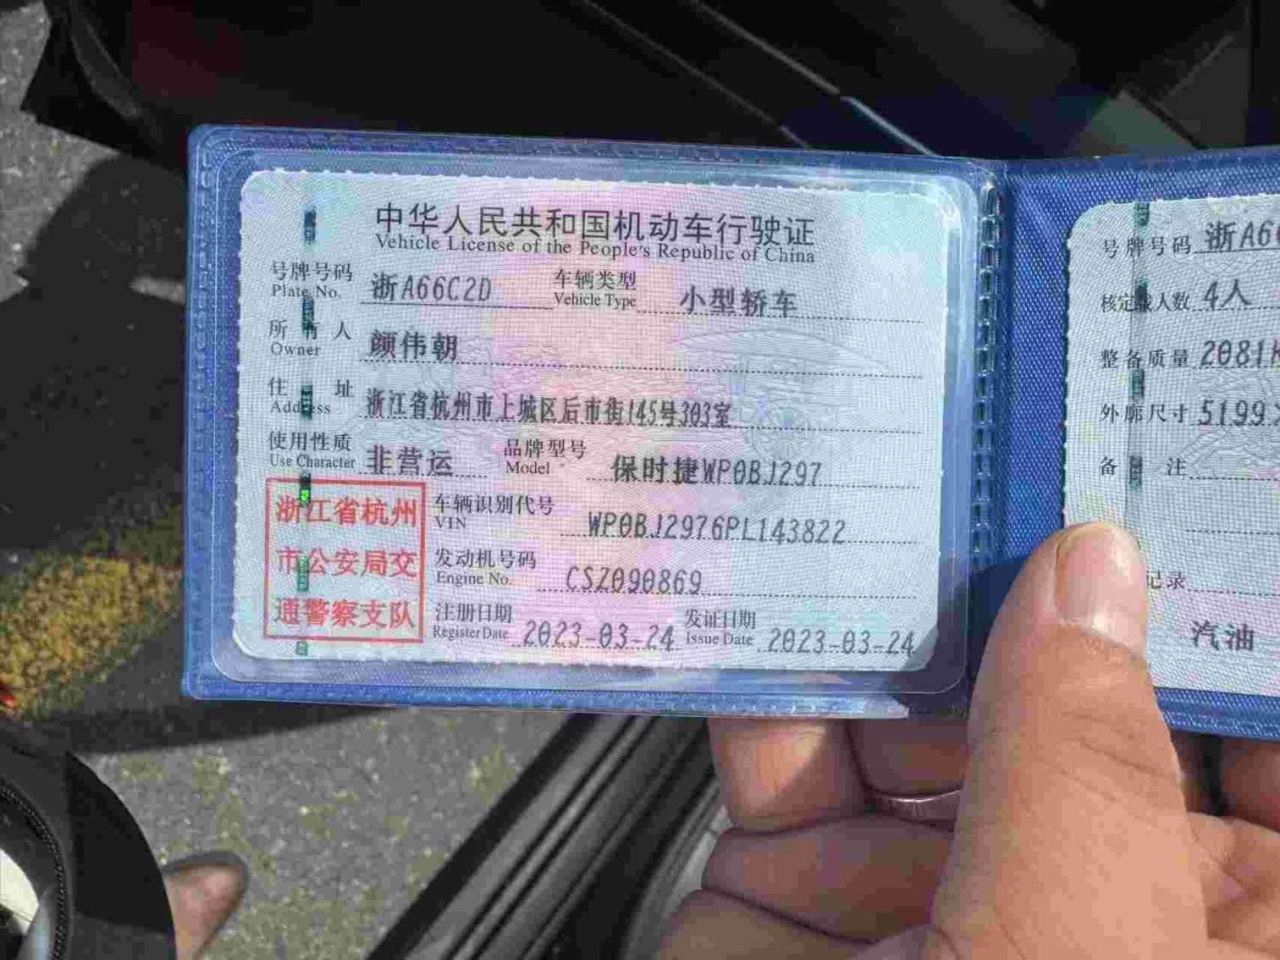 中华人民共和国机动车行驶证
Vehicle License of the People's Republic of China
号牌号码 浙A66C2D 车辆类型 小型轿车
Plate No. Vehicle Type
所有人 颜伟朝
Owner
住址 浙江省杭州市上城区后市街145号303室
Address
使用性质 非营运 品牌型号 保时捷WP0BJ297
Use Character Model
浙江省杭州
市公安局交
通警察支队
车辆识别代号 WP0BJ2976PL143822
VIN
发动机号码 CSZ090869
Engine No.
注册日期 2023-03-24 发证日期 2023-03-24
Register Date Issue Date
号牌号码 浙A6
核定载人数 4人
整备质量 2081
外廓尺寸 5199
备注
记录
汽油